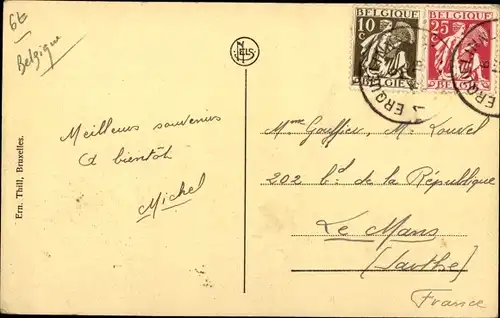 6 E
Belgique
BELGIQUE
10 C
BELGIË
BELGIQUE
25 C
ERQUELINNES
NELS
Meilleurs souvenirs
A bientôt
Michel
Ern. Thill, Bruxelles.
Mme Gouffier, M. Louvel
202 bd de la République
Le Mans
(Sarthe)
France